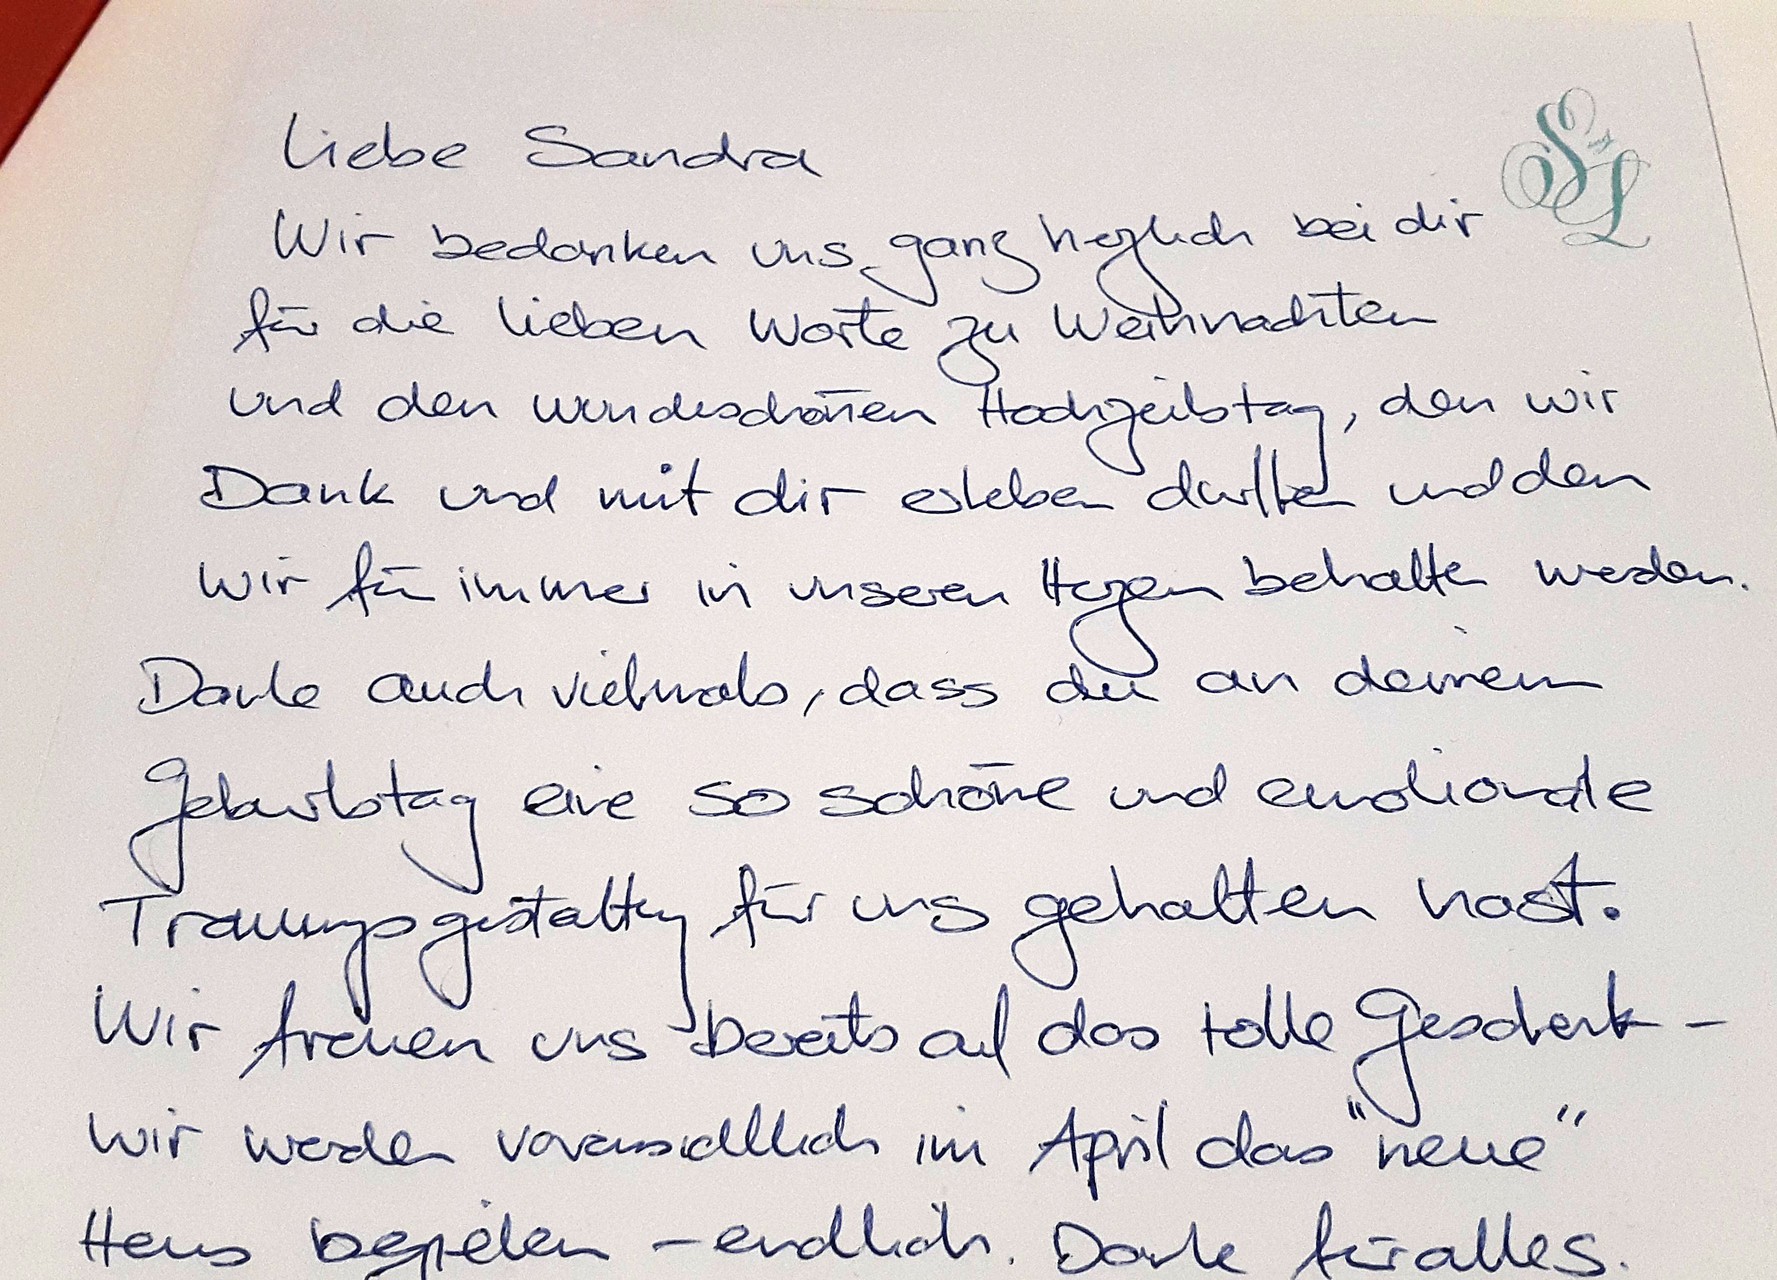 Liebe Sandra
S L
Wir bedanken uns ganz herzlich bei dir
für die lieben Worte zu Weihnachten
und den wunderschönen Hochzeitstag, den wir
Dank und mit dir erleben durften und den
wir für immer in unseren Herzen behalten werden.
Danke auch vielmals, dass du an deinem
Geburtstag eine so schöne und emotionale
Trauungsgestaltung für uns gehalten hast.
Wir freuen uns bereits auf das tolle Geschenk -
wir werden voraussichtlich im April das "neue"
Haus beziehen - endlich. Danke für alles.